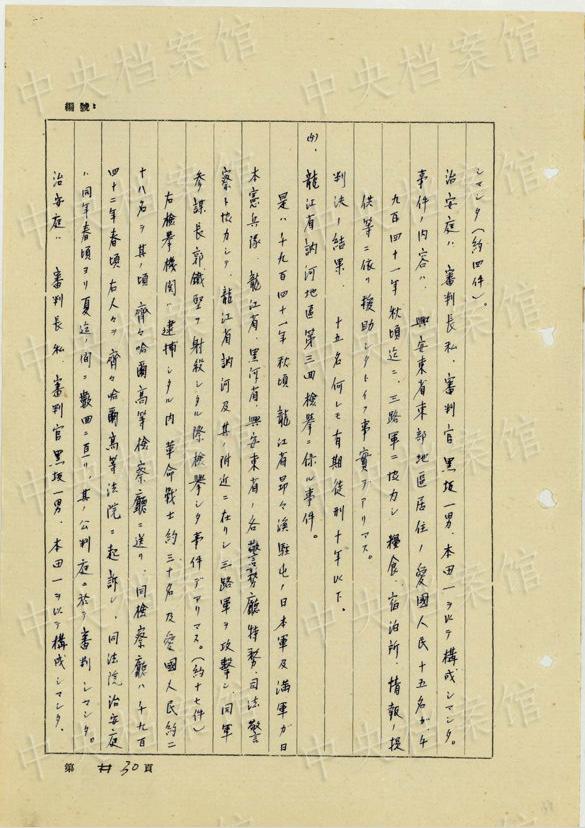 編號:
シマシタ(約四件)。
治安庭ハ 審判長私、審判官黒坂一男、本田一ヲ以テ構成シマシタ。
事件ノ内容ハ、興安東省東部地區居住ノ愛國人民十五名ガ、千
九百四十一年秋頃迄ニ、三路軍ニ協力シ 糧食、宿泊所、情報ノ提
供等ニ依リ援助シタトイフ事實デアリマス。
判決ノ結果、十五名何レモ有期徒刑十年以下。
龍江省訥河地區第三回檢擧ニ係ル事件。
是ハ千九百四十一年秋頃 龍江省昂々溪駐屯ノ日本軍及満軍ガ日
本憲兵隊、龍江省、黒河省、興安東省ノ各警務廳特務、司法警
察ト協力シテ、龍江省訥河及其ノ附近ニ在リシ三路軍ヲ攻撃シ、同軍
参謀長郭鐵堅ヲ射殺シタル際檢擧シタ事件デアリマス。(約十七件)
右檢擧機関ハ逮捕シタル内革命戰士約三十名及愛國人民約二
十八名ヲ其ノ頃 齊々哈爾高等檢察廳ニ送リ、同檢察廳ハ千九百
四十二年春頃 右人々ヲ齊々哈爾高等法院ニ起訴シ、同法院治安庭
ハ同年春頃ヨリ夏迄ノ間ニ數回ニ亘リ、其ノ公判庭ニ於テ審判シマシタ。
治安庭ハ 審判長私、審判官黒坂一男、本田一ヲ以テ構成シマシタ、
第 30 頁
中央档案馆